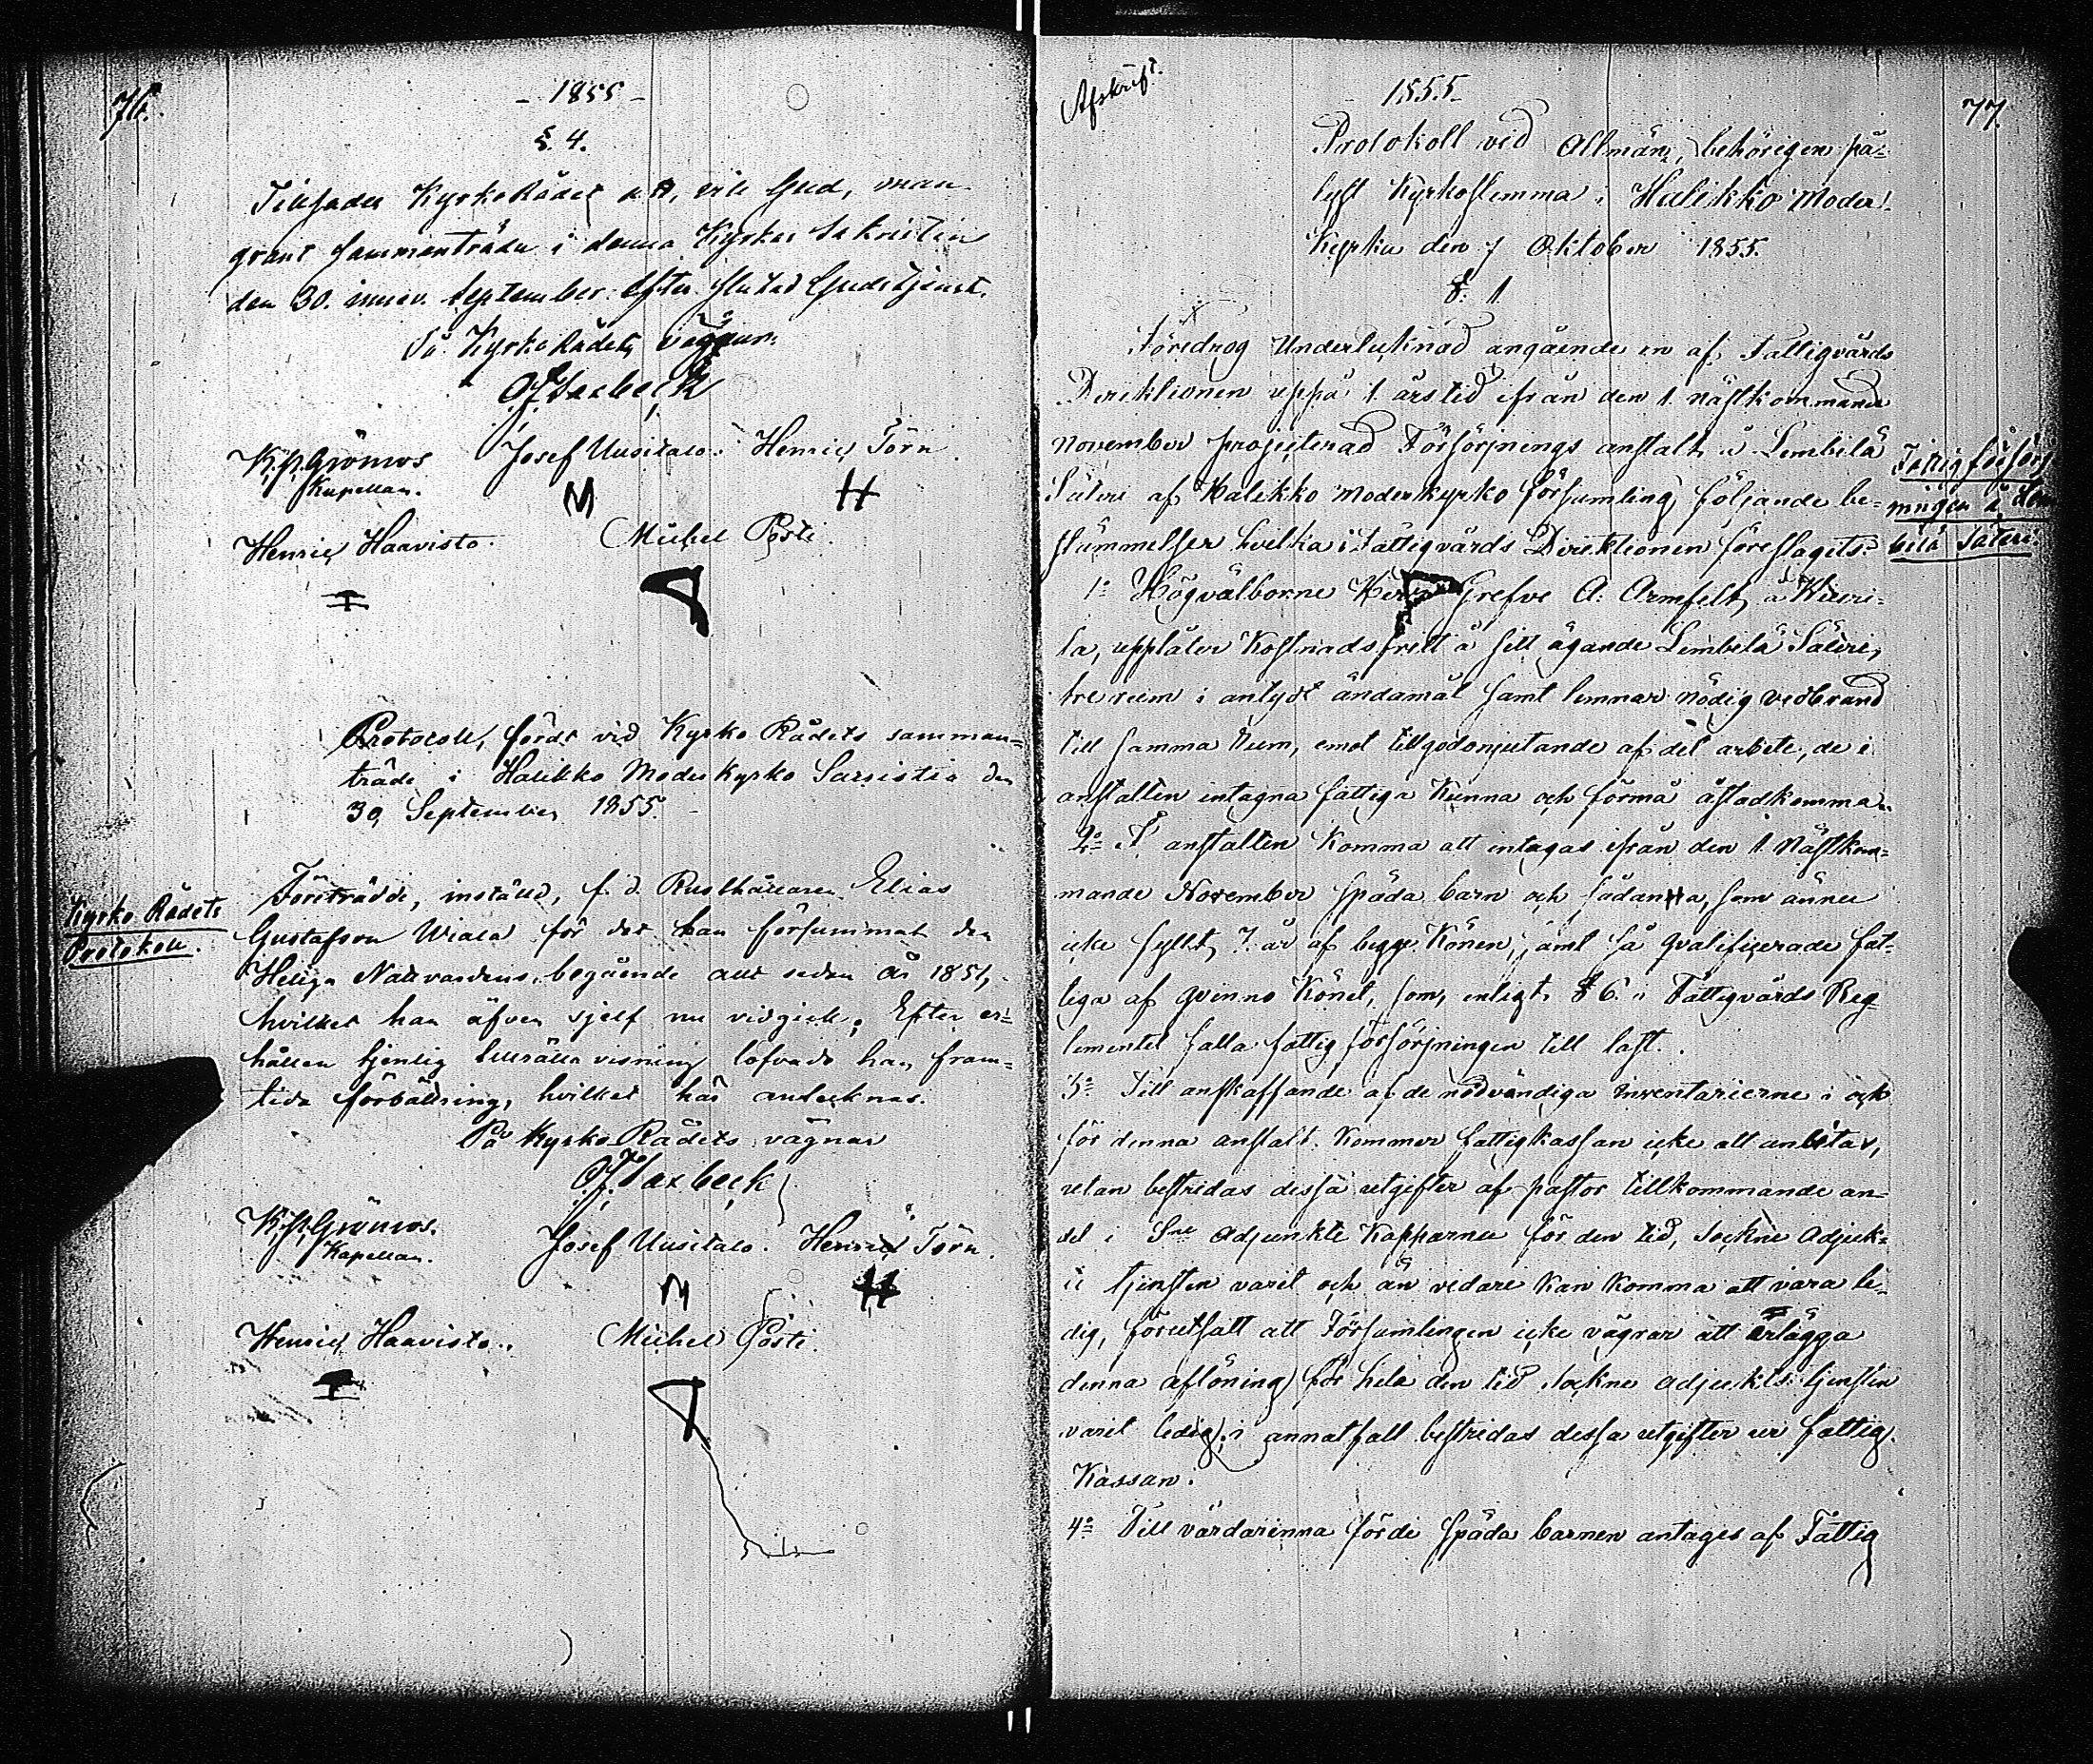 76.
- 1855 -
§. 4.
Tillsades Kyrko Rådet att, vill Gud, man
grant sammanträda i denna Kyrkas Sakristia
den 30. innev. September efter slutad Gudstjenst.
På Kyrko Rådets vägnar.
K. J. Grönroos Josef Uusitalo. Henric Törn.
Kapellan.
Henric Haavisto. Michel Pösti.
Protocoll, fördt vid Kyrko Rådets samman-
träde i Halikko Moderkyrko Sacristia den
30 September 1855.
Kyrko Rådets
Protokoll.
Företrädde, inställd, f. d. Rusthållaren Elias
Gustafsson Wiala för det han försummat den
Heliga Nattvardens begående allt sedan år 1851,
hvilket han äfven sjelf nu vidgick. Efter er-
hållen tjenlig tillrättavisning lofvade han fram-
tida förbättring, hvilket här antecknas.
På Kyrko Rådets vägnar
K. J. Grönroos.
Kapellan.
Josef Uusitalo. Henric Törn.
Henric Haavisto. Michel Pösti.
Afskrift.
1855.
77.
Protokoll vid Allmän, behörigen på-
lyst Kyrkostemma i Halikko Moder
Kyrka den 7 Oktober 1855.
§. 1
Föredrog Undertecknad angående en af Fattigvårds
Direktionen uppå 1 årstid ifrån den 1 nästkommande
November projecterad Försörjnings anstalt å Lembilä
Säteri af Halikko moderkyrko församling följande be-
stämmelser hvilka i Fattigvårds Direktionen föreslagits.
Fattigförsörj
ningen å Lem
bilä Säteri.
1:o Högvälborne Herr Grefve A. Armfelt å Wiuri-
la, upplåter Kostnadsfritt å sitt ägande Lembilä Säteri,
tre rum i antydt ändamål samt lemnar nödig vedbrand
till samma Rum, emot tillgodonjutande af det arbete, de i
anstalten intagna fattiga kunna och förmå åstadkomma.
2:o I anstalten komma att intagas ifrån den 1 Nästkom-
mande November späda barn och sådanna, som ännu
icke fyllt 7 år af begge Könen, samt så qvalificerade fat-
tiga af qvinno Könet, som, enligt § 6 i Fattigvårds Reg-
lementet falla fattigförsörjningen till last.
3:o Till anskaffande af de nödvändiga inventarierne i och
för denna anstalt kommer fattigkassan icke att anlitas,
utan bestridas dessa utgifter af pastor tillkommande an-
del i Sne Adjunkts Kapparne för den tid, Sockne Adjunk-
ts tjensten varit och än vidare kan komma att vara le-
dig, förutsatt att Församlingen icke vägrar att erlägga
denna aflöning för hela den tid Sockne adjunkts tjensten
varit ledig; i annat fall bestridas dessa utgifter ur fattig
Kassan.
4:o Till vårdarinna för de späda barnen antages af Fattig